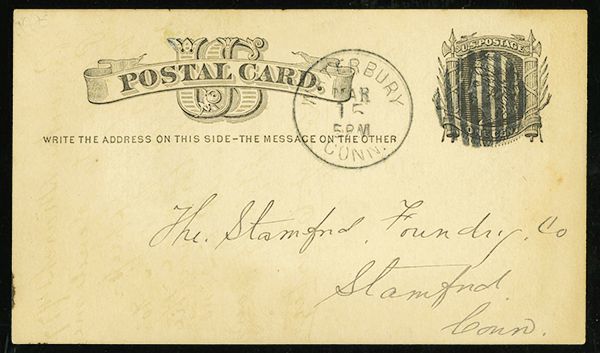 US
U.S. POSTAGE
POSTAL CARD.
WATERBURY
MAR
15
5 PM
CONN.
ONE CENT
WRITE THE ADDRESS ON THIS SIDE-THE MESSAGE ON THE OTHER
The. Stamford. Foundry. Co
Stamford.
Conn.